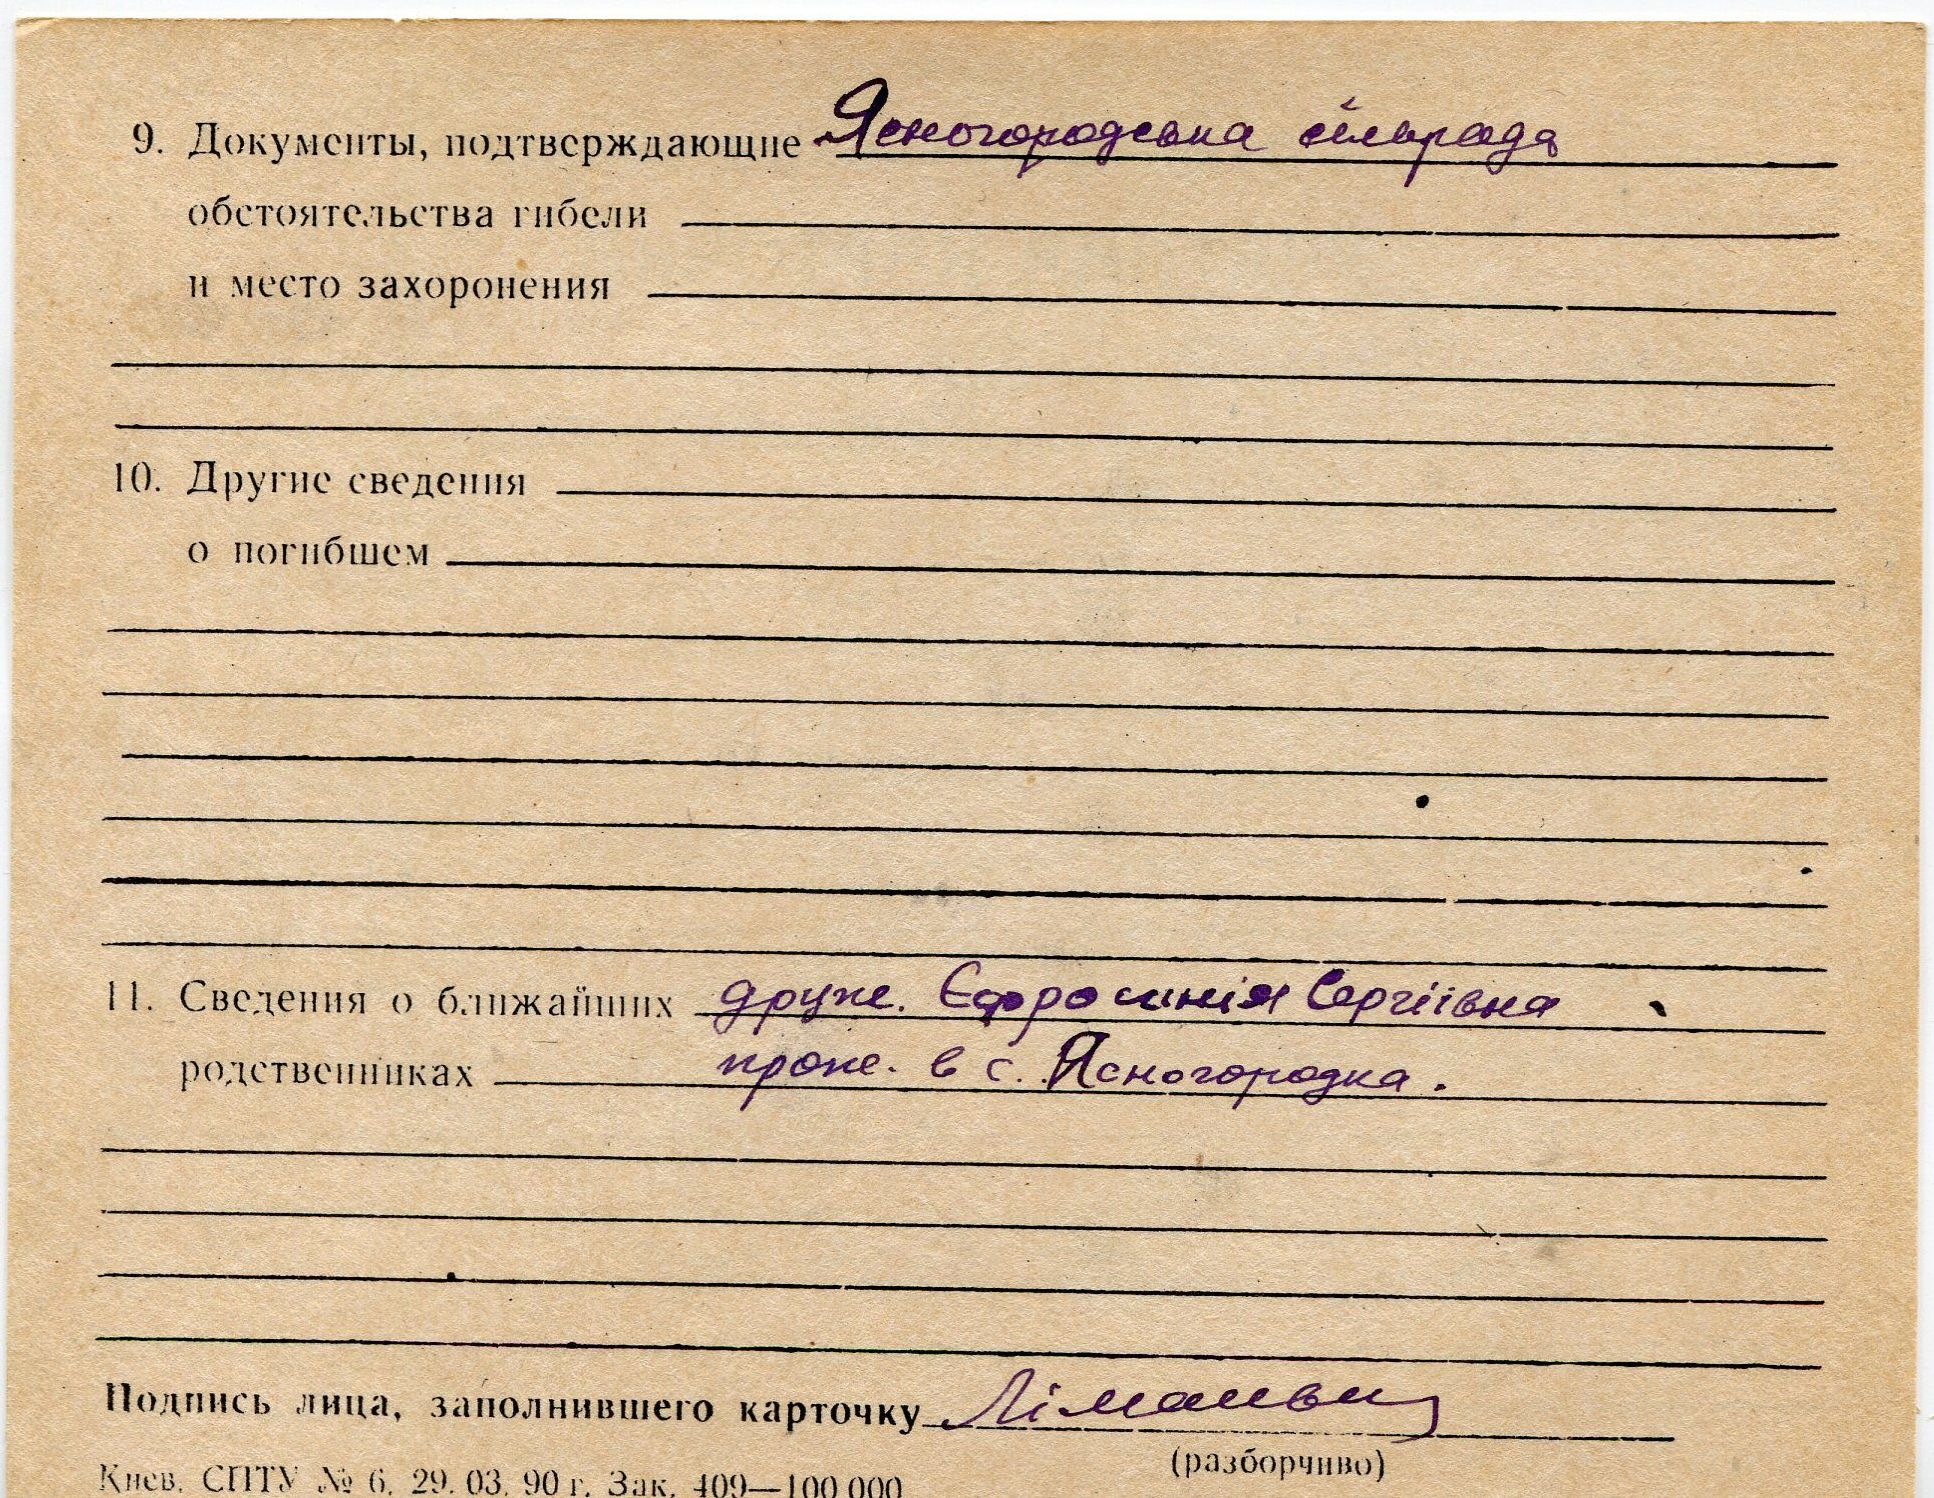 9. Документы, подтверждающие Ясногородська сільрада
обстоятельства гибели
и место захоронения
10. Другие сведения
о погибшем
11. Сведения о ближайших друж. Єфросинія Сергіївна
родственниках прож. в с. Ясногородка.
Подпись лица, заполнившего карточку
(разборчиво)
Киев. СПТУ № 6. 29. 03. 90 г. Зак. 409—100 000